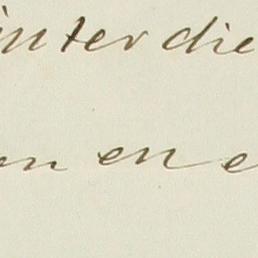 inter die
en en e